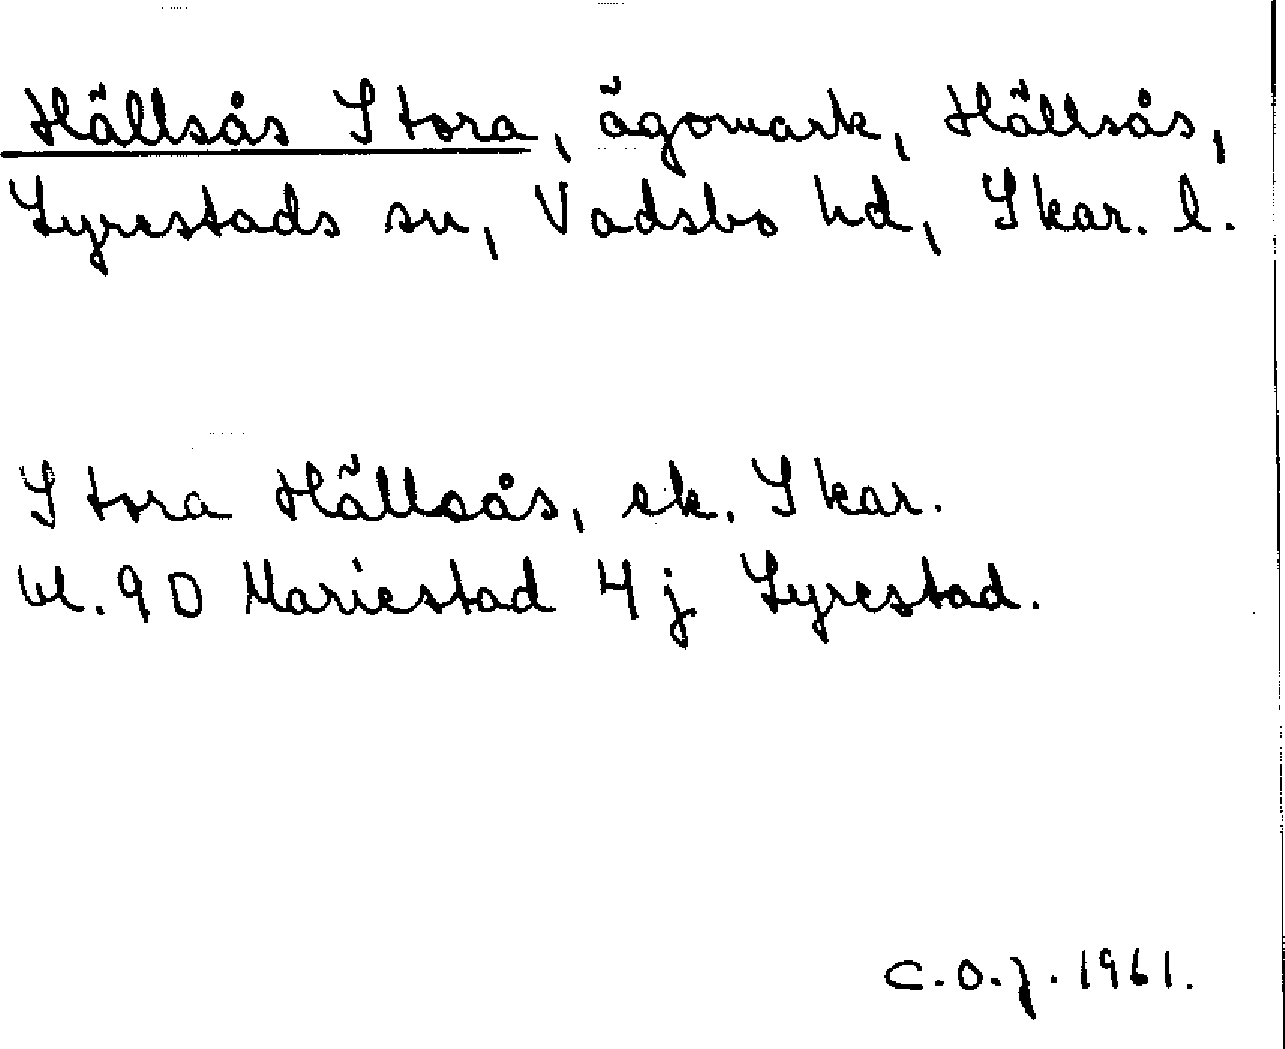 Hällsås Stora, ägomark, Hällsås,
Lyrestads sn, Vadsbo hd, Skar. l.
Stora Hällsås, ek. Skar.
bl. 9 D Mariestad 4 j Lyrestad.
C. O. J. 1961.